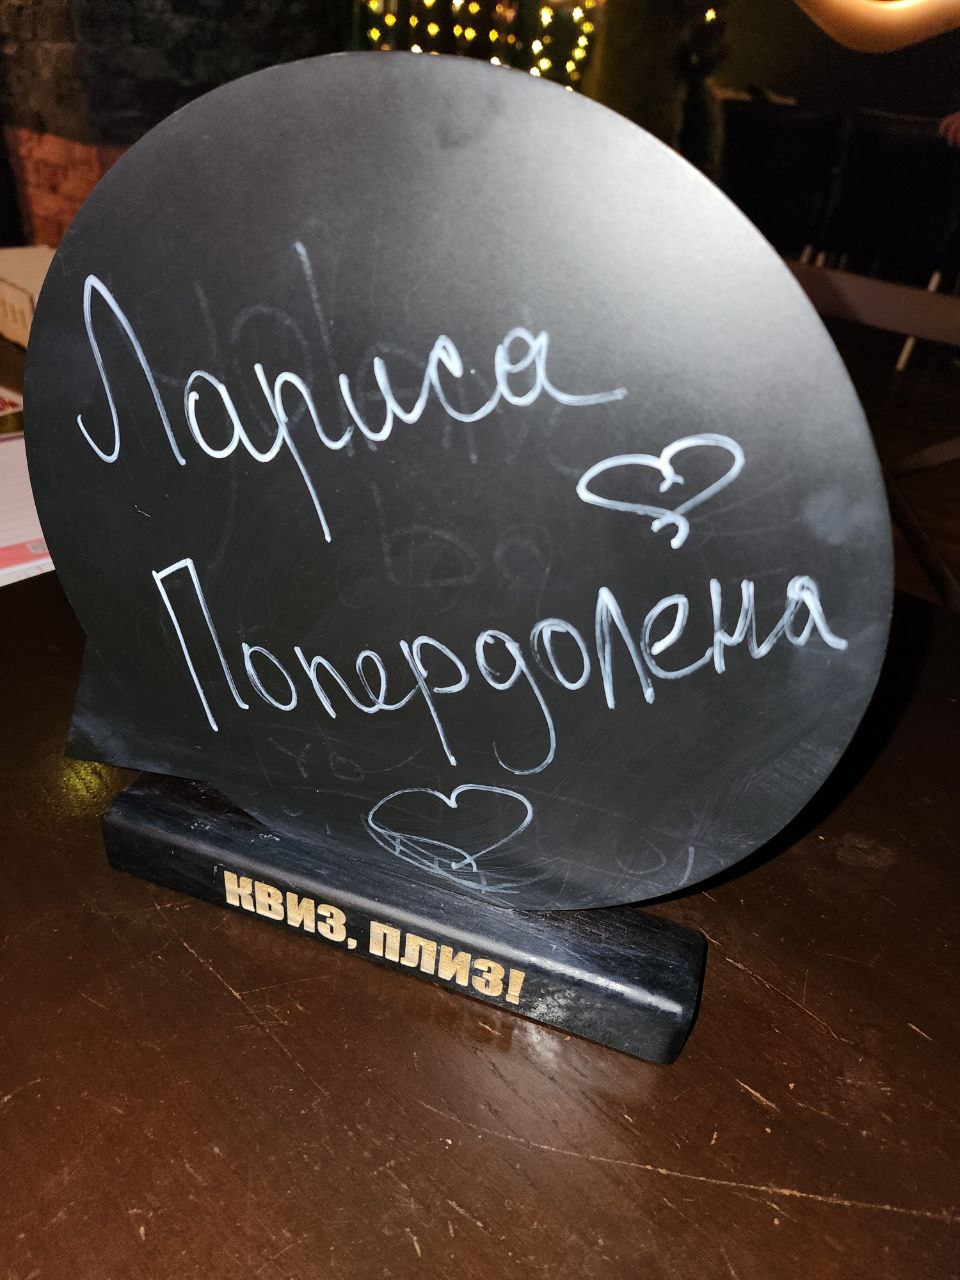 Лариса
Попердолена
КВИЗ, ПЛИЗ!